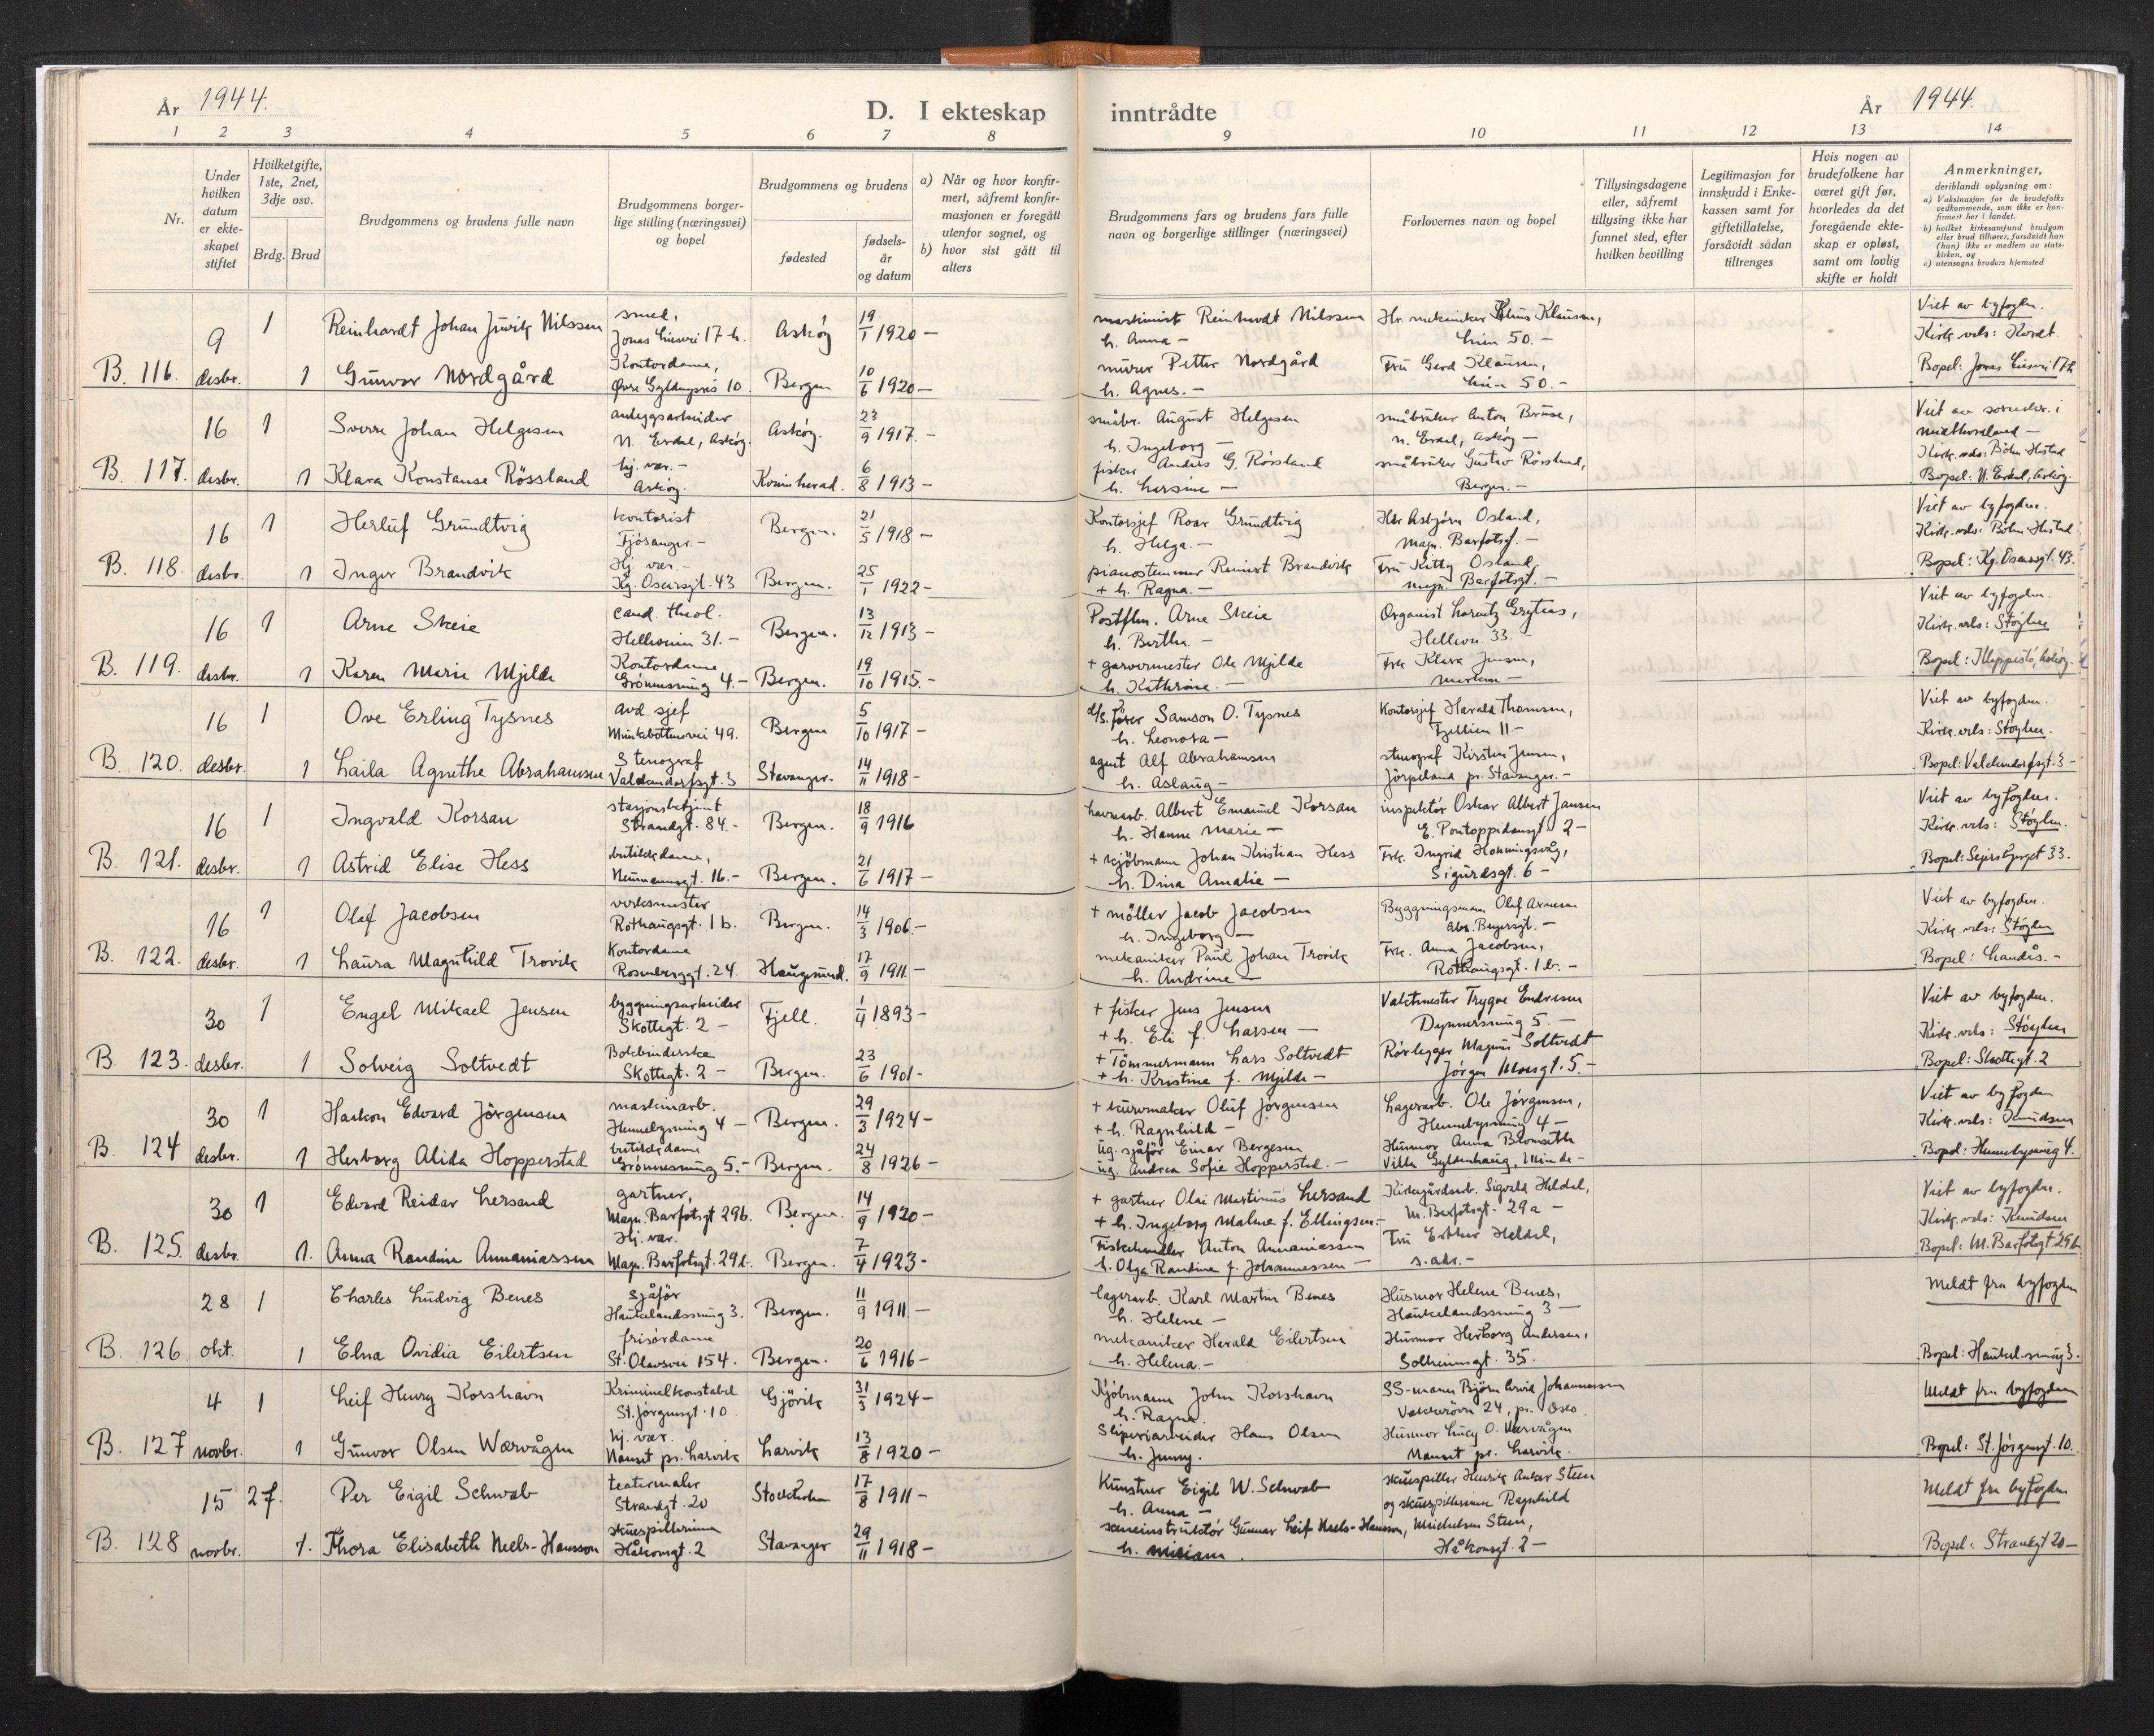 År 1944.
D. I ekteskap inntrådte
År 1944.
1 2 3 4 5 6 7 8 9 10 11 12 13 14
Nr.
Under hvilken datum er ekteskapet stiftet
Hvilket gifte, 1ste, 2net, 3dje osv.
Brdg. Brud
Brudgommens og brudens fulle navn
Brudgommens borgerlige stilling (næringsvei) og bopel
Brudgommens og brudens
fødested
fødselsår og datum
a) Når og hvor konfirmert, såfremt konfirmasjonen er foregått utenfor sognet, og
b) hvor sist gått til alters
Brudgommens fars og brudens fars fulle navn og borgerlige stillinger (næringsvei)
Forlovernes navn og bopel
Tillysingsdagene eller, såfremt tillysing ikke har funnet sted, efter hvilken bevilling
Legitimasjon for innskudd i Enkekassen samt for giftetillatelse, forsåvidt sådan tiltrenges
Hvis nogen av brudefolkene har været gift før, hvorledes da det foregående ekteskap er opløst, samt om lovlig skifte er holdt
Anmerkninger, deriblandt oplysning om:
a) Vaksinasjon for de brudefolks vedkommende, som ikke er konfirmert her i landet.
b) hvilket kirkesamfund brudgom eller brud tilhører, forsåvidt han (hun) ikke er medlem av statskirken, og
c) utensogns bruders hjemsted
9 1 Reinhardt Johan Juvik Nilssen smed, Jonas Liesvei 17 h. Askøy 19/1 1920 – maskinist Reinhardt Nilssen h. Anna – Hr. mekaniker Klaus Klausen, Lien 50. – Viet av byfogden. Kirk. vels: Kvadt.
B. 116. desbr. 1 Gunvor Nordgård Kontordame, Øvre Gyldenpris 10. Bergen 10/6 1920 – murer Petter Nordgård h. Agnes. – Fru Gerd Klausen, Lien 50. – Bopel: Jonas Liesvei 17h
16 1 Sverre Johan Helgesen anleggsarbeider N. Erdal, Askøy. Askøy. 23/9 1917. – småbr. August Helgesen h. Ingeborg – småbruker Anton Bruse, N. Erdal, Askøy – Viet av sorenskr. i Midthordland –
B. 117. desbr. 1 Klara Konstanse Røssland hj. vær. – Askøy. Kvinnherad. 6/8 1913 – fisker Anders G. Røssland h. Larsine – småbruker Gustav Røssland, Bergen. – Kirk. vels: Bøhn Hustad Bopel: N. Erdal, Askøy.
16 1 Herluf Grundtvig kontorist Fjøsanger. – Bergen. 21/5 1918 – Kontorsjef Roar Grundtvig h. Helga. – Hr. Asbjørn Osland, Magn. Barfotsgt. – Viet av byfogden. Kirk. vels: Bøhn Hustad
B. 118. desbr. 1 Inger Brandvik Hj. vær. – Kg. Oscarsgt. 43 Bergen. 25/1 1922 – pianostemmer Reinert Brandvik + h. Ragna. – Fru Kitty Osland, Magn. Barfotsgt. – Bopel: Kg. Oscarsgt. 43.
16 1 Arne Skeie cand. theol. Helleveien 31. – Bergen. 13/12 1913 – Postflm. Arne Skeie h. Birtha – Organist Lorentz Grytnes, Hellevn. 33. – Viet av byfogden. Kirk. vels: Støylen
B. 119. desbr. 1 Karen Marie Mjelde Kontordame Grønnesmug 4. – Bergen. 19/10 1915. – + garvermester Ole Mjelde h. Kathrine. – Frk. Klara Jensen, Bopel: Kleppestø, Askøy.
16 1 Ove Erling Tysnes avd. sjef Munkebotnsvei 49. Bergen 5/10 1917 – d/s. fører Samson O. Tysnes h. Leonora – Kontorsjef Harald Thomsen, Fjellien 11 – Viet av byfogden. Kirk. vels: Støylen.
B. 120. desbr. 1 Laila Agnethe Abrahamsen Stenograf Valckendorfsgt. 3 Stavanger. 14/11 1918 – agent Alf Abrahamsen h. Aslaug – stenograf Kirsten Jensen, Jørpeland pr. Stavanger. – Bopel: Valckendorfsgt. 3 –
16 1 Ingvald Korsan stasjonsbetjent Strandgt. 84. – Bergen. 18/9 1916 havnearb. Albert Emanuel Korsan h. Hanne Marie – inspektør Oskar Albert Jansen E. Pontoppidansgt. 2 – Viet av byfogden. Kirk. vels: Støylen.
B. 121. desbr. 1 Astrid Elise Hess butikkdame, Neumannsgt. 16. – Bergen. 21/6 1917 – + kjøbmann Johan Kristian Hess h. Dina Amalie – Frk. Ingrid Honningsvåg, Sigurdsgt. 6 – Bopel: Sejersbjerget 33.
16 1 Olaf Jacobsen verksmester Rothaugsgt. 1 b. Bergen. 14/3 1906. – + møller Jacob Jacobsen h. Ingeborg – Byggningsmann Olaf Arnesen Abs. Beyersgt. – Viet av byfogden. Kirk. vels: Støylen
B. 122. desbr. 1 Laura Magnhild Trovik Kontordame Rosenberggt. 24. Haugesund. 17/9 1911. – mekaniker Paul Johan Trovik h. Andrine – Frk. Anna Jacobsen, Rothaugsgt. 1 b. – Bopel: Landås. –
30 1 Engel Mikael Jensen byggningsarbeider Skottegt. 2 – Fjell. 1/4 1893 – + fisker Jens Jensen + h. Eli f. Larsen – Vaktmester Trygve Endresen Dynnersmug 5. – Viet av byfogden. Kirk. vels: Støylen
B. 123. desbr. 1 Solveig Soltvedt Bokbinderske Skottegt. 2 – Bergen. 23/6 1901 – + Tømmermann Lars Soltvedt + h. Kristine f. Mjelde – Rørlegger Magnus Soltvedt Jørgen Moegt. 5. – Bopel: Skottegt. 2
30 1 Haakon Edvard Jörgensen maskinarb. Hennebysmug 4 – Bergen. 29/3 1924 – + kurvmaker Oluf Jørgensen + h. Ragnhild – Lagerarb. Ole Jørgensen, Hennebysmug 4 – Viet av byfogden Kirk. vels: Knudsen
B. 124 desbr. 1 Herborg Alida Hopperstad butikkdame Grønnesmug 5. – Bergen. 24/8 1926 – ug. sjåfør Einar Bergesen ug. Andrea Sofie Hopperstad. – Husmor Anna Blomseth Villa Gyldenhaug, Minde – Bopel: Hennebysmug 4.
30 1 Edvard Reidar Lersand gartner, Magn. Barfotsgt 29b. Bergen. 14/9 1920 – + gartner Olai Martinus Lersand + h. Ingeborg Malene f. Ellingsen – Kirkegårdsarb. Sigvald Heldal, M. Barfotsgt. 29a – Viet av byfogden. Kirk. vels: Knudsen
B. 125. desbr. 1. Anna Randine Annaniassen Hj. vær. Magn. Barfotsgt. 29b. Bergen. 7/4 1923 – Fiskehandler Anton Annaniassen h. Olga Randine f. Johannessen – Fru Esther Heldal, s. adr. – Bopel: M. Barfotsgt. 29b
28 1 Charles Ludvig Benes sjåfør Haukelandssmug 3. Bergen. 11/9 1911. – lagerarb. Karl Martin Benes h. Helene – Husmor Helene Benes, Haukelandssmug 3 – Meldt fra byfogden
B. 126 okt. 1 Elna Ovidia Eilertsen frisørdame St. Olavsvei 154. Bergen. 20/6 1916 – mekaniker Harald Eilertsen h. Helena. – Husmor Herborg Andersen, Solheimsgt. 35. Bopel: Haukel.smug 3.
4 1 Leif Henry Korshavn Kriminalkonstabel St. Jørgensgt. 10 Gjövik 31/3 1924 – Kjøbmann John Korshavn h. Ragna. SS-mann Bjørn Arvid Johannessen Vækerøvn 24, pr. Oslo. Meldt fra byfogden
B. 127 novbr. 1 Gunvor Olsen Wærvågen hj. vær. Nanset pr. Larvik Larvik 13/8 1920 – Sliperiarbeider Hans Olsen h. Jenny. Husmor Lucy O. Wærvågen Nanset pr. Larvik. Bopel: St. Jørgensgt. 10.
15 2 f. Per Eigil Schwab teatermaler Strandgt. 20 Stockholm 17/8 1911 – Kunstner Eigil W. Schwab h. Anna – skuespiller Henrik Anker Steen og skuespillerinne Ragnhild Meldt fra byfogden
B. 128 novbr. 1. Thora Elisabeth Neels-Hansson skuespillerinne Håkonsgt. 2 Stavanger 29/11 1918 – sceneinstruktør Gunnar Leif Neels-Hansson, h. Miriam. Michelsen Steen, Håkonsgt. 2 – Bopel: Strandgt 20 –